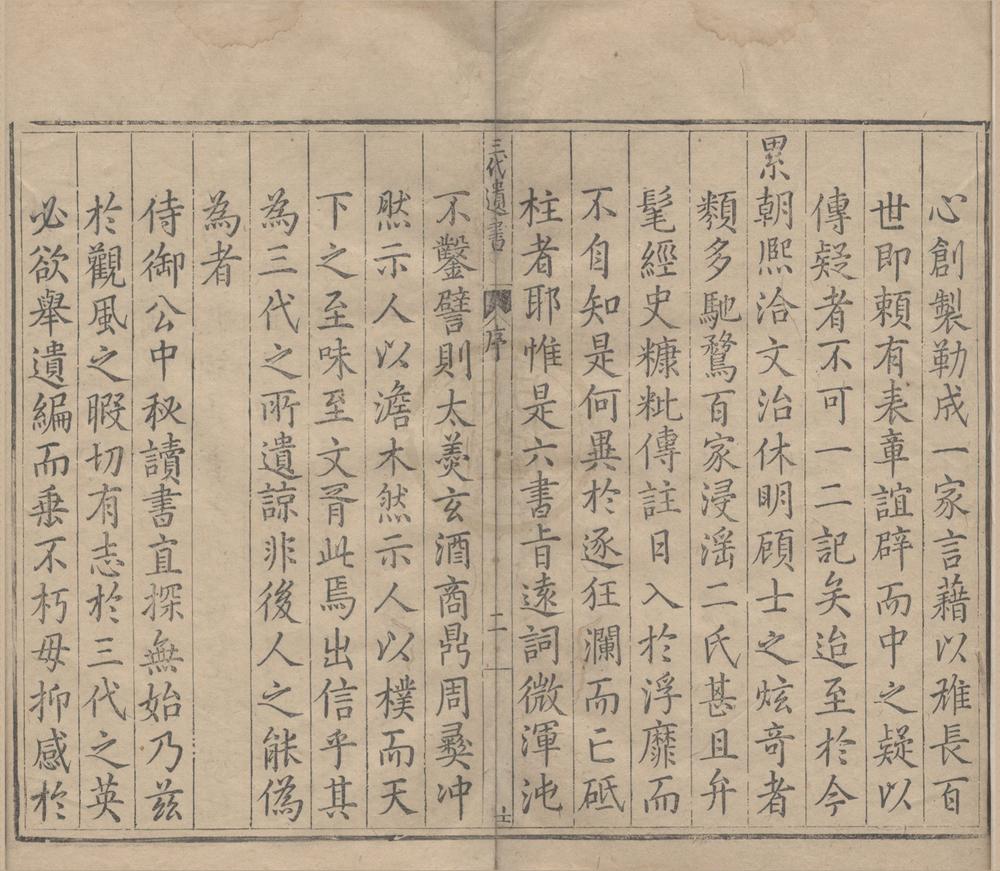 心創製勒成一家言藉以雄長百
世即頼有表章誼辟而中之疑以
傳疑者不可一二記矣迨至於今
累朝熙洽文治休明顧士之炫奇者
類多馳騖百家浸淫二氏甚且弁
髦經史糠粃傳註日入於浮靡而
不自知是何異於逐狂瀾而亡砥
柱者耶惟是六書旨遠詞微渾沌
三代遺書 序 二 士
不鑿譬則太羮玄酒商鼎周彝冲
然示人以澹木然示人以樸而天
下之至味至文胥此焉出信乎其
為三代之所遺諒非後人之能偽
為者
侍御公中秘讀書直探無始乃茲
於觀風之暇切有志於三代之英
必欲舉遺編而垂不朽毋抑感於